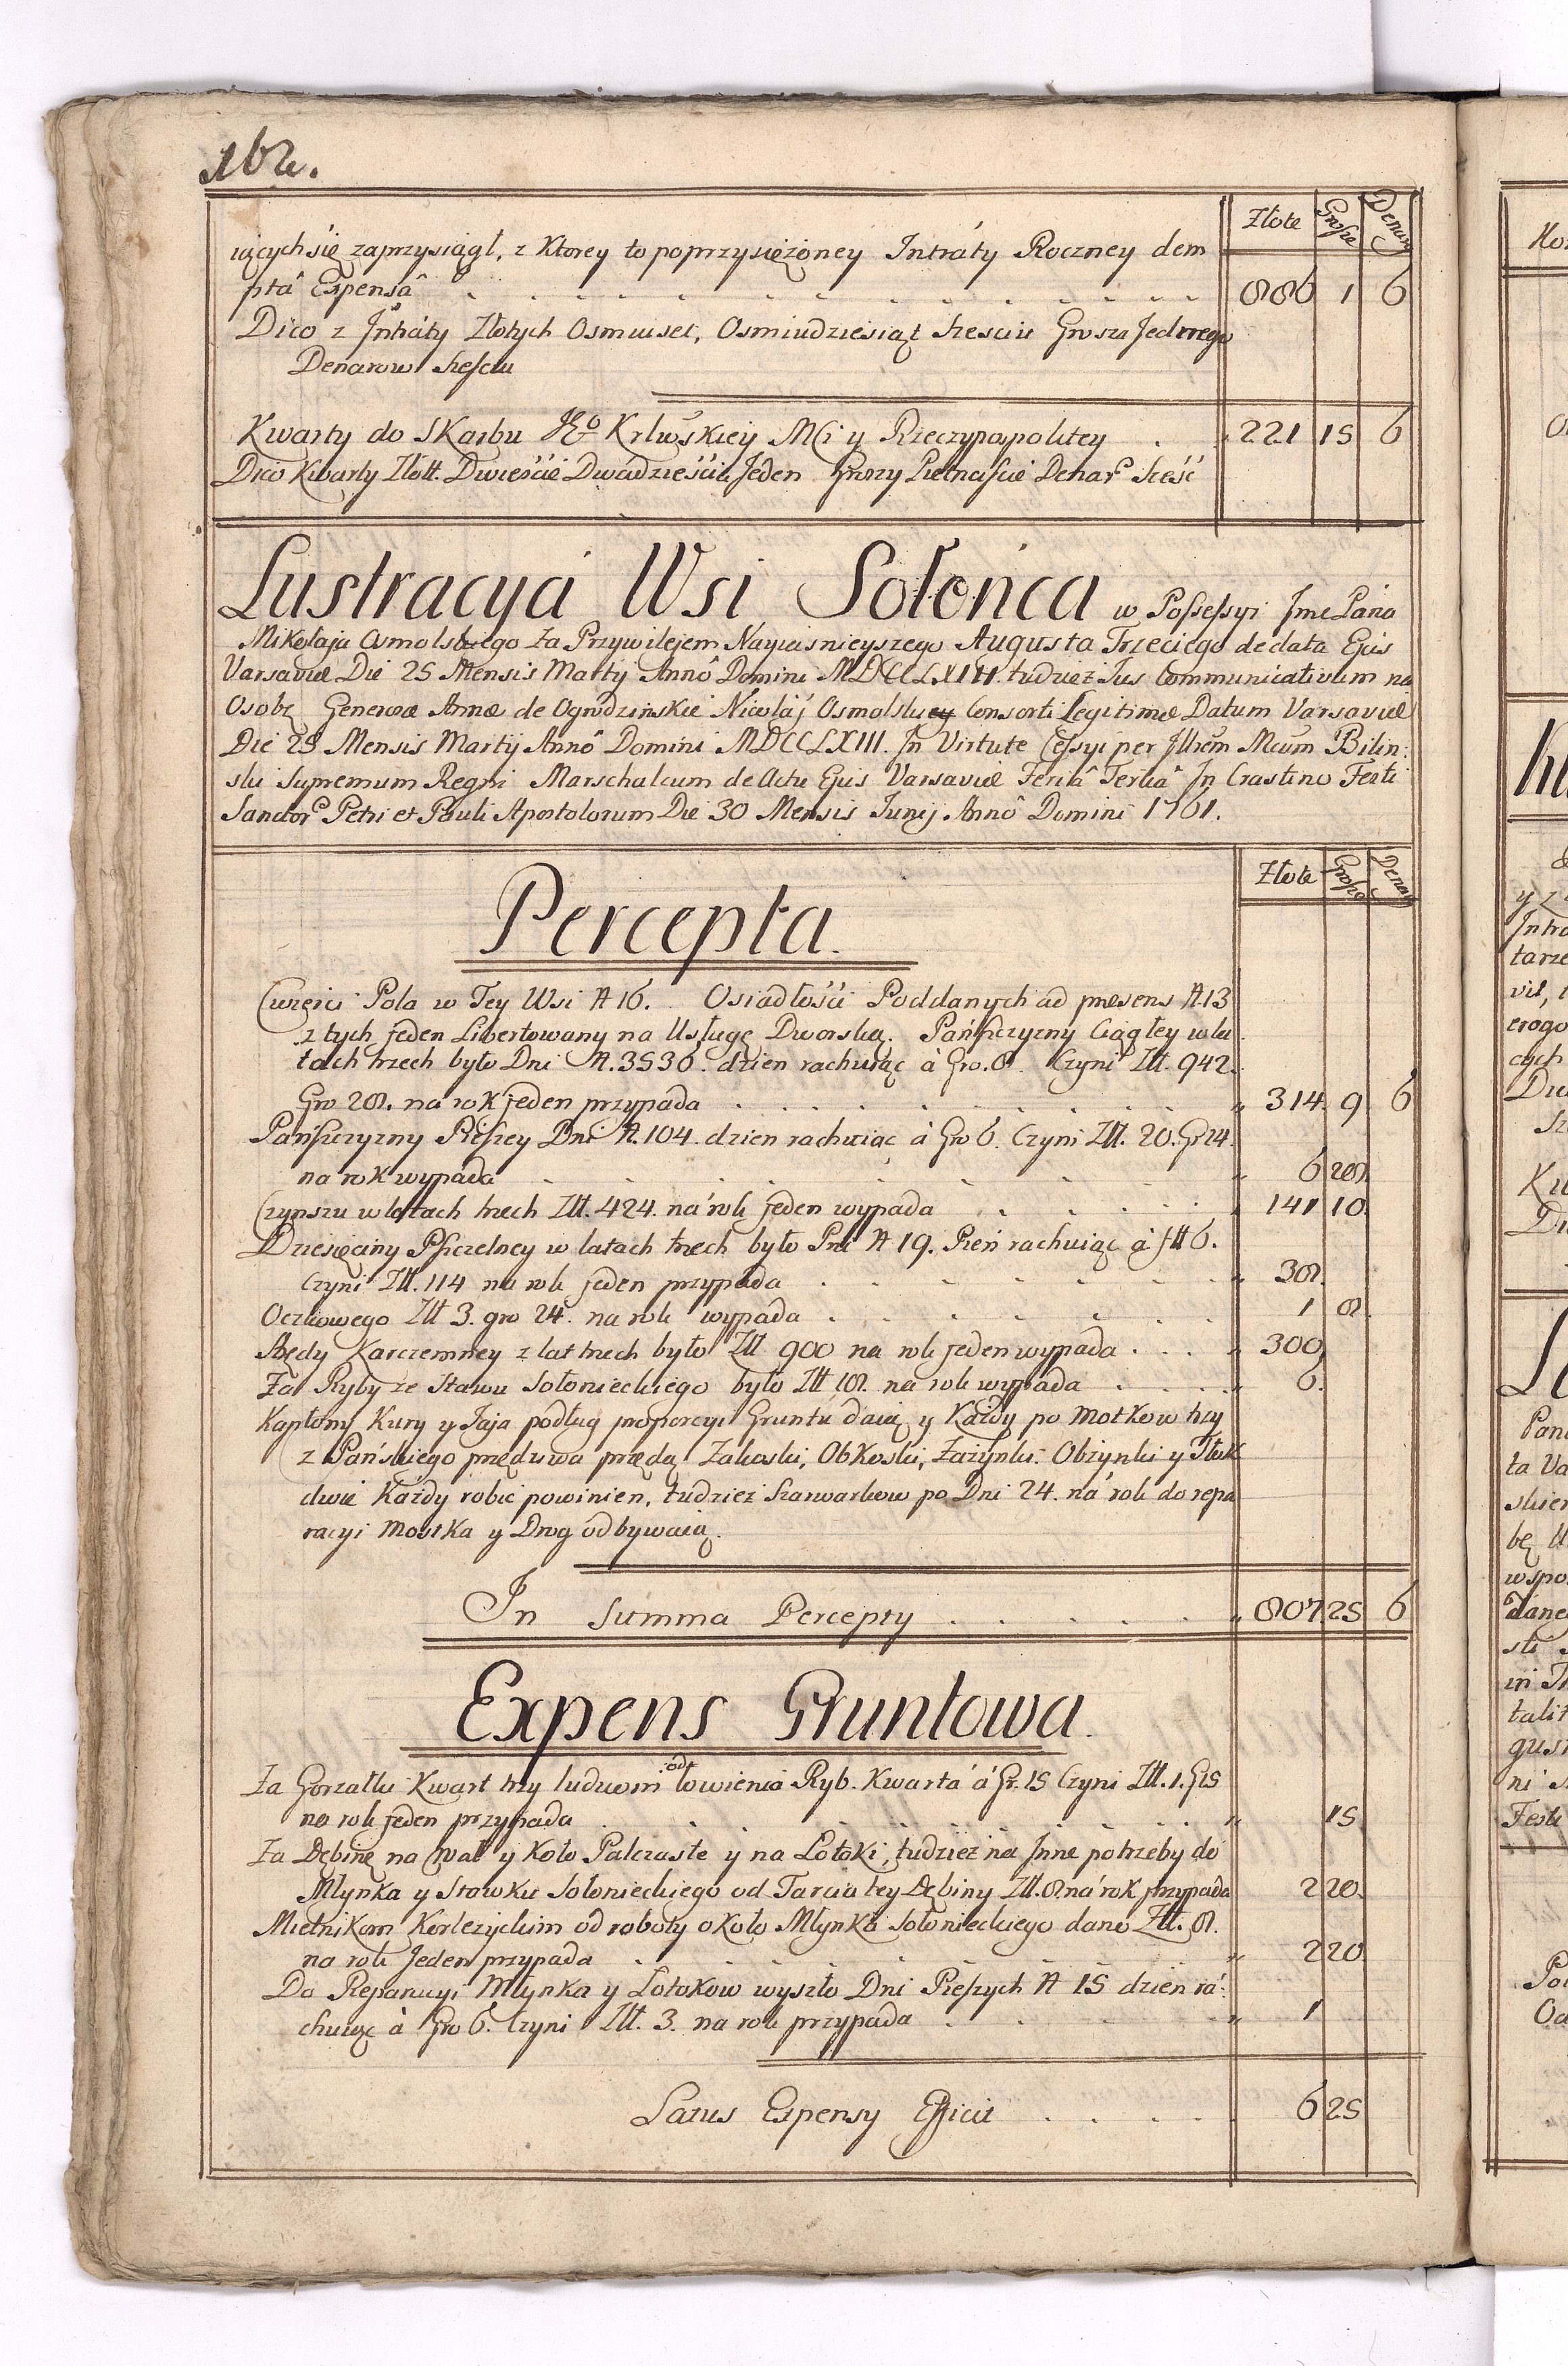 162.
Złote Grosze Denary
iących się zaprzysiągł, z Ktorey to poprzysiężoney Intraty Roczney dem
ptâ Expensâ . . . . . . . . . . 886 1 6
Dico z Jntraty Złotych Osmset, Osmiudziesiąt Szesciu Grosza Jednego
Denarow Szesciu
Kwarty do Skarbu JKo Krlwskiey Mci y Rzeczypospolitey . . 221 15 6
Dico Kwarty Złott. Dwieście Dwudzieścia Jeden Groszy Pietnaście Denar Sześć
Lustracya Wsi Sołońca w Possessyi Jmc Pana
Mikołaja Osmolskiego za Przywilejem Nayiasnieyszego Augusta Trzeciego de data Ejus
Varsaviæ Die 25 Mensis Martij Annô Domini MDCCLXIII. tudzież Jus Communicativum na
Osobę Generosæ Annæ de Ogrodzinskie Nicolaj Osmolsky Consorti Legitimæ Datum Varsaviæ
Die 25 Mensis Martij Annô Domini MDCCLXIII. In Virtute Cessyi per Jllrem Mcum Bilin:
ski Supremum Regni Marschalcum de Actu Ejus Varsaviæ Feriâ Tertiâ In Crastino Festi
Sanctor Petri et Pauli Apostolorum Die 30 Mensis Junij Annô Domini 1761.
Złote Grosze Denary
Percepta.
Cwierci Pola w Tey Wsi N 16. Osiadłości Poddanych ad præsens N.13
z tych jeden Libertowany na Usługę Dworską. Pańszczyzny Ciągłey w la
tach trzech było Dni N.3536. dzien rachuiąc á Gro.8. Czyni Złt. 942.
Gro 28. na rok jeden przypada . . . . . 314 9 6
Pańszczyzny Pieszey Dni N.104. dzien rachuiąc á Gro 6. Czyni Złt. 20. Gr 24.
na rok wypada . . . . . 6 28
Czynszu w latach trzech Złt. 424. na rok jeden wypada . . . . 141 10
Dziesięciny Pszczelney w latach trzech było Pni N 19. Pień rachuiąc á Złt 6.
Czyni Złt. 114 na rok jeden przypada . . . . . 38
Oczkowego Złt 3. gro 24. na rok wypada . . . . . 1 8
Rędy Karczemney z lat trzech było Złt 900 na rok jeden wypada . . . 300
Za Ryby ze Stawu Sołonieckiego było Złt 18. na rok wypada . . . . 6
Kapłony Kury y Jaja podług proporcyi Gruntu daią y Każdy po Motkow trzy
z Pańskiego przędziwa przędą Zakoski, Obkoski, Zażynki. Obżynki y Tłuk
dwie Każdy robić powinien, tudzież Szarwarkow po Dni 24. na rok do repa
racyi Mostka y Drog odbywaią.
In Summa Percepty . . . . . 807 25 6
Expens Gruntowa.
Za Gorzałki Kwart trzy ludziom od łowienia Ryb. Kwarta á Gr. 15 Czyni Złt. 1. G15
na rok jeden przypada . . . . . 15
Za Dębinę na Wał y Koło Palczaste y na Łotoki, tudzież na Jnne potrzeby do
Młynka y Stawku Sołonieckiego od Tarcia tey Dębiny Złt. 8 na rok przypada 2 20
Mielnikom Korczyckim od roboty około Młynka Sołonieckiego dano Złt. 8.
na rok Jeden przypada . . . . . 2 20
Do Reparacyi Młynka y Łotokow wyszło Dni Pieszych N 15 dzien ra:
chuiąc á Gro 6. Czyni Złt. 3. na rok przypada . . . . 1
Latus Expensy Efficit . . . . 6 25